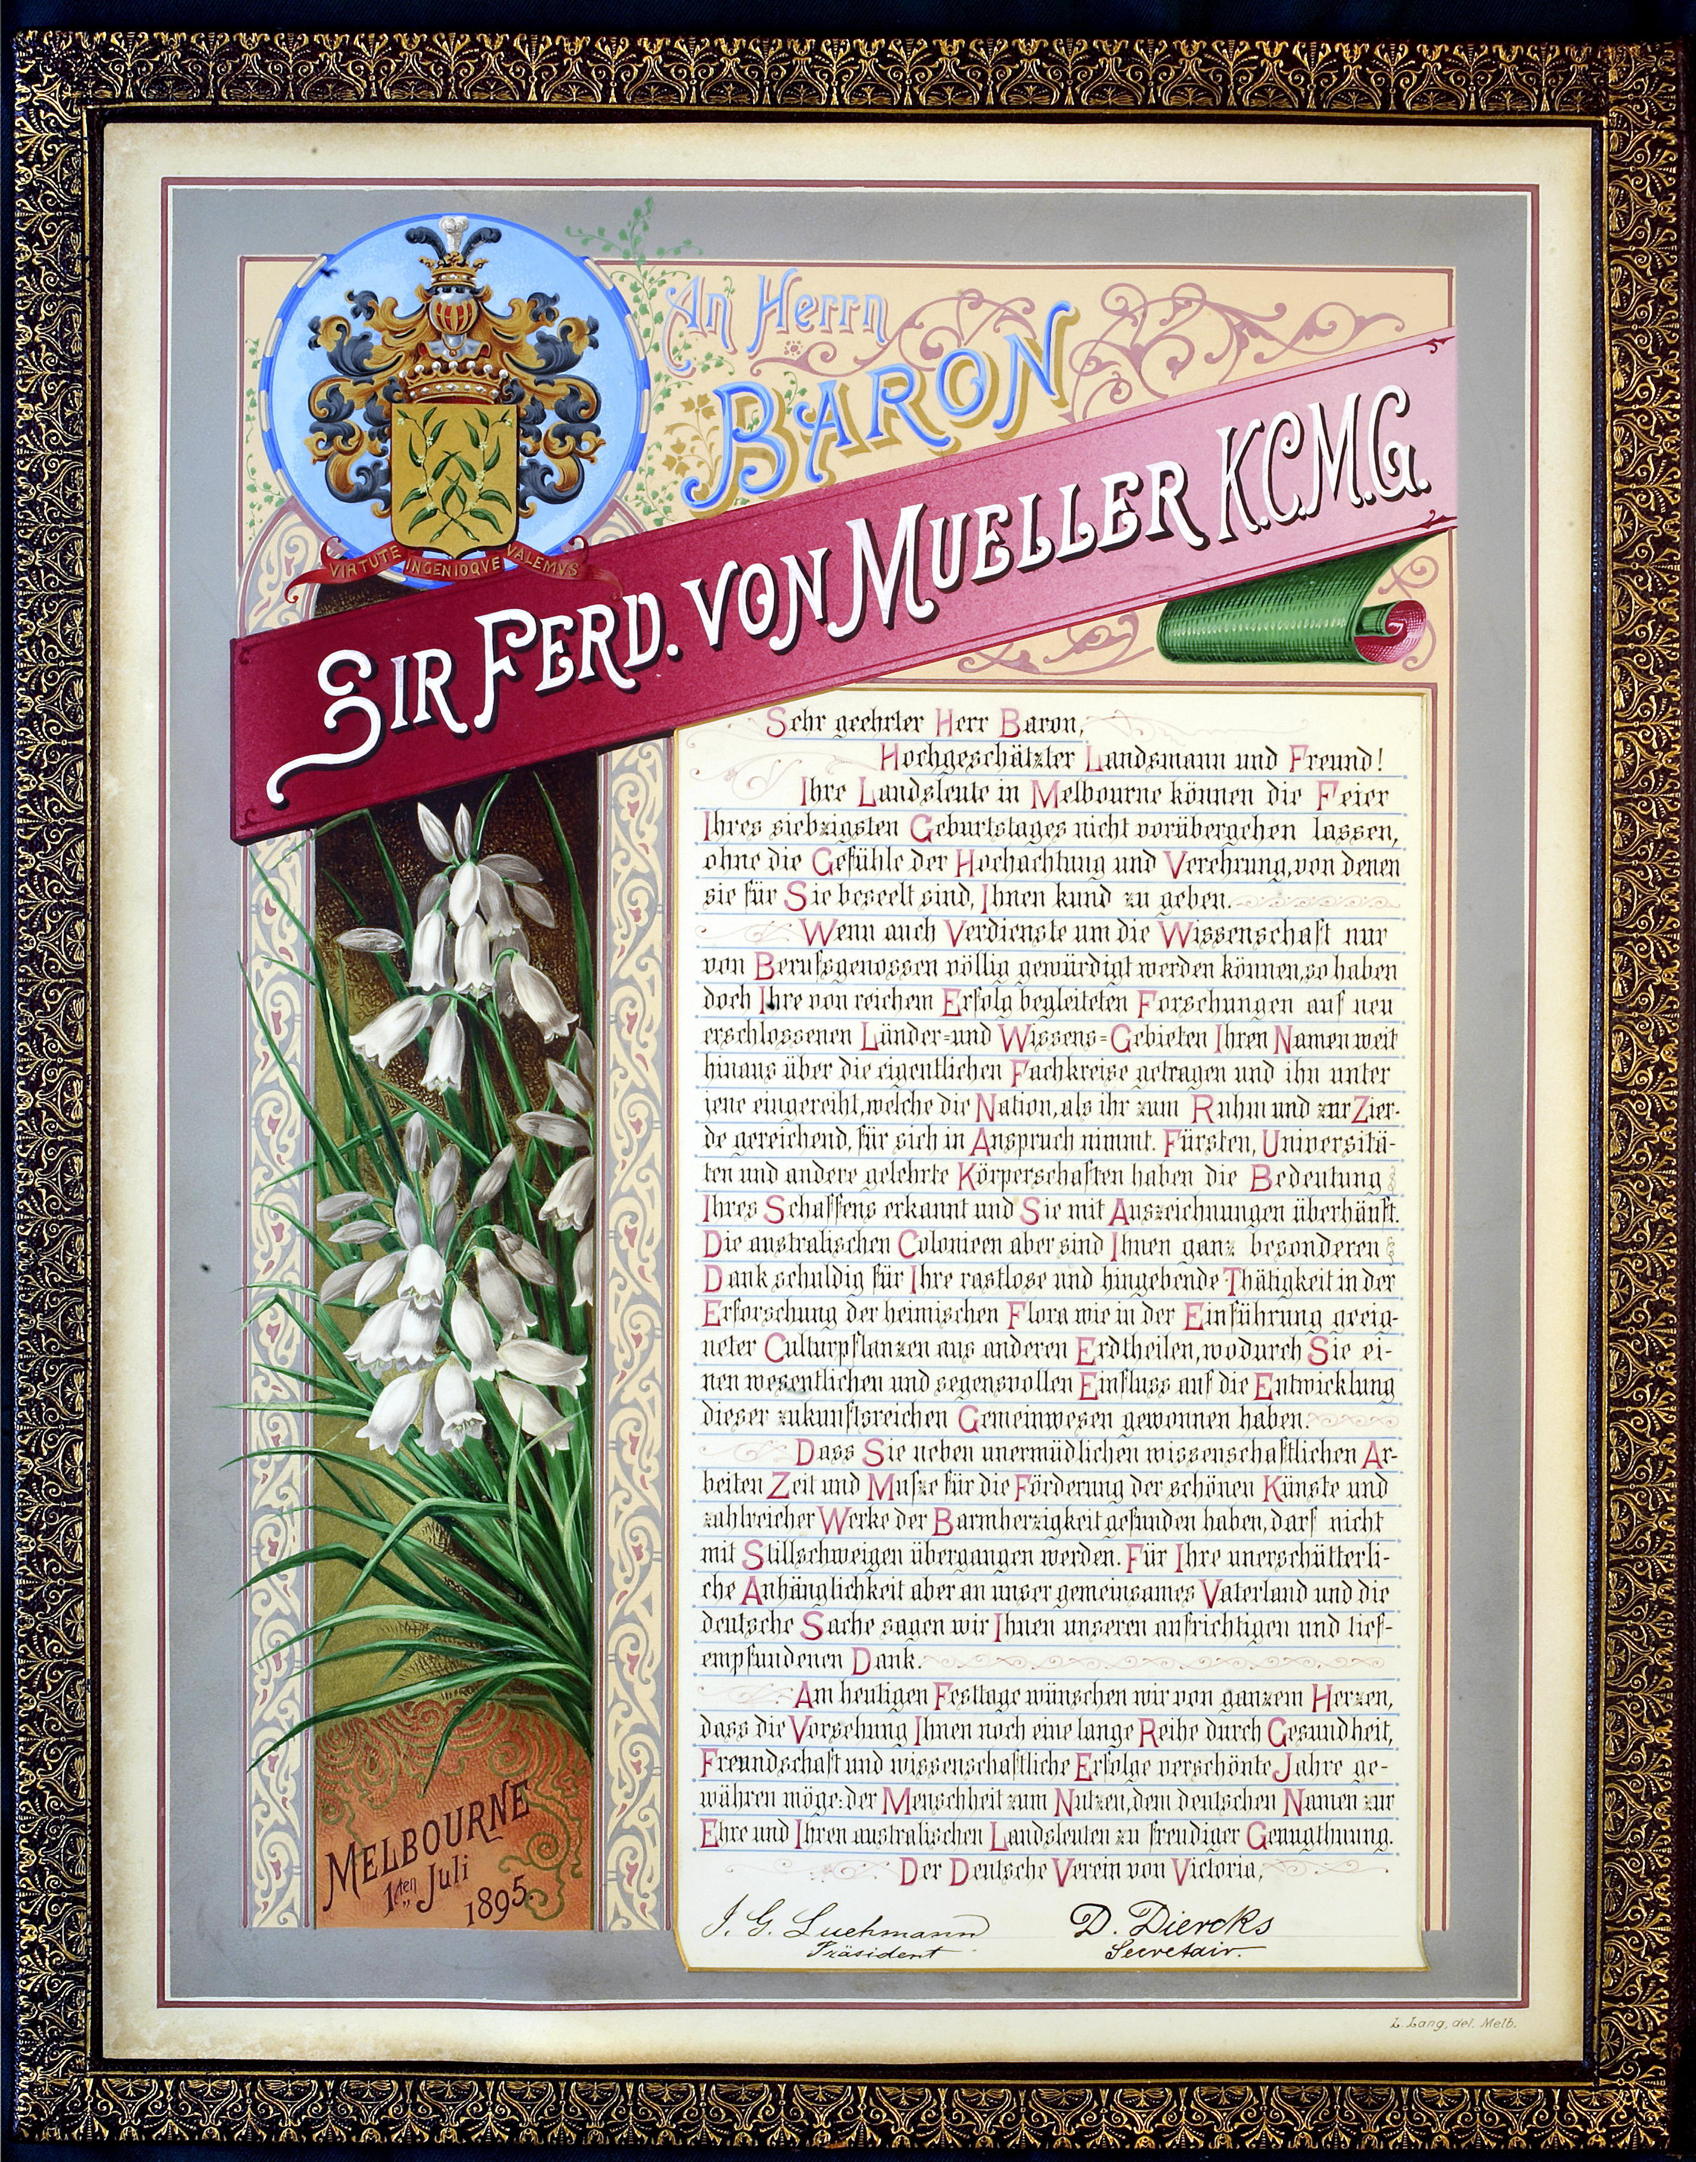 An Herrn
BARON
SIR FERD. VON MUELLER K.C.M.G.
VIRTUTE INGENIOQVE VALEMVS
Sehr geehrter Herr Baron,
Hochgeschätzter Landsmann und Freund!
Ihre Landsleute in Melbourne können die Feier
Ihres siebzigsten Geburtstages nicht vorübergehen lassen,
ohne die Gefühle der Hochachtung und Verehrung, von denen
sie für Sie beseelt sind, Ihnen kund zu geben.
Wenn auch Verdienste um die Wissenschaft nur
von Berufsgenossen völlig gewürdigt werden können, so haben
doch Ihre von reichem Erfolg begleiteten Forschungen auf neu
erschlossenen Länder- und Wissens-Gebieten Ihren Namen weit
hinaus über die eigentlichen Fachkreise getragen und ihn unter
jene eingereiht, welche die Nation, als ihr zum Ruhm und zur Zier-
de gereichend, für sich in Anspruch nimmt. Fürsten, Universitä-
ten und andere gelehrte Körperschaften haben die Bedeutung
Ihres Schaffens erkannt und Sie mit Auszeichnungen überhäuft.
Die australischen Colonieen aber sind Ihnen ganz besonderen
Dank schuldig für Ihre rastlose und hingebende Thätigkeit in der
Erforschung der heimischen Flora wie in der Einführung geeig-
neter Culturpflanzen aus anderen Erdtheilen, wodurch Sie ei-
nen wesentlichen und segensvollen Einfluss auf die Entwicklung
dieser zukunftsreichen Gemeinwesen gewonnen haben.
Dass Sie neben unermüdlichen wissenschaftlichen Ar-
beiten Zeit und Musze für die Förderung der schönen Künste und
zahlreicher Werke der Barmherzigkeit gefunden haben, darf nicht
mit Stillschweigen übergangen werden. Für Ihre unerschütterli-
che Anhänglichkeit aber an unser gemeinsames Vaterland und die
deutsche Sache sagen wir Ihnen unseren aufrichtigen und tief-
empfundenen Dank.
Am heutigen Festtage wünschen wir von ganzem Herzen,
dass die Vorsehung Ihnen noch eine lange Reihe durch Gesundheit,
Freundschaft und wissenschaftliche Erfolge verschönte Jahre ge-
währen möge: der Menschheit zum Nutzen, dem deutschen Namen zur
Ehre und Ihren australischen Landsleuten zu freudiger Genugthuung.
Der Deutsche Verein von Victoria,
J. G. Luehmann D. Dierks
Präsident Secretair.
MELBOURNE
1ten Juli
1895
L. Lang, del. Melb.